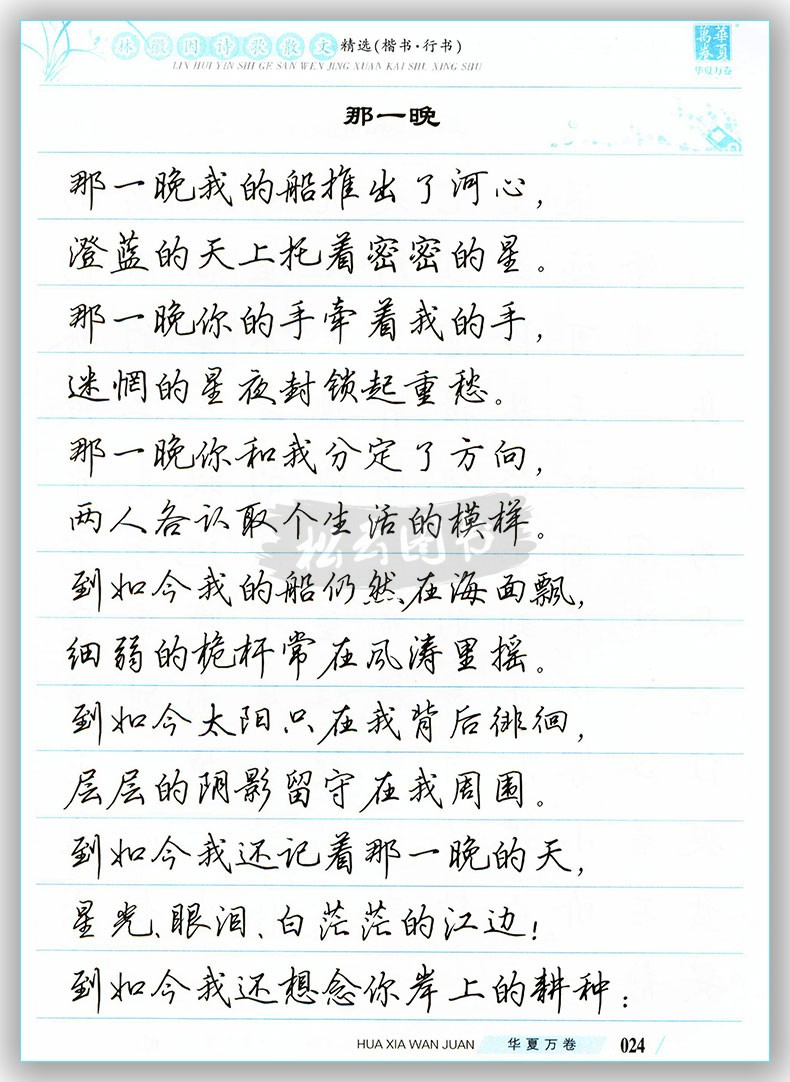 林徽因诗歌散文精选(楷书·行书)
LIN HUI YIN SHI GE SAN WEN JING XUAN KAI SHU XING SHU
萬卷 華夏
华夏万卷
那一晚
那一晚我的船推出了河心，
澄蓝的天上托着密密的星。
那一晚你的手牵着我的手，
迷惘的星夜封锁起重愁。
那一晚你和我分定了方向，
两人各认取个生活的模样。
松云图书
到如今我的船仍然在海面飘，
细弱的桅杆常在风涛里摇。
到如今太阳只在我背后徘徊，
层层的阴影留守在我周围。
到如今我还记着那一晚的天，
星光、眼泪、白茫茫的江边！
到如今我还想念你岸上的耕种：
HUA XIA WAN JUAN 华夏万卷 024